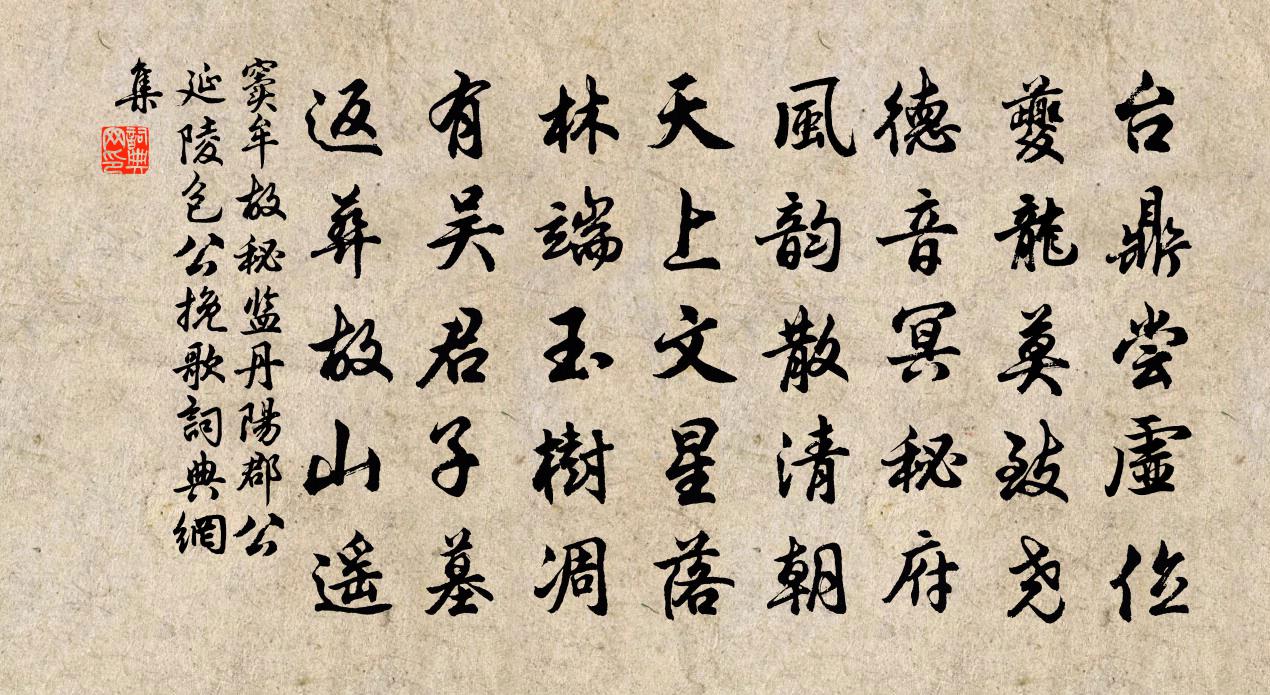 台鼎尝虛位
夔龍莫致尧
德音冥秘府
風韵散清朝
天上文星落
林端玉樹凋
有吴君子墓
返葬故山遥
窦牟故秘监丹陽郡公
延陵包公挽歌詞典網
集
詞典
网印